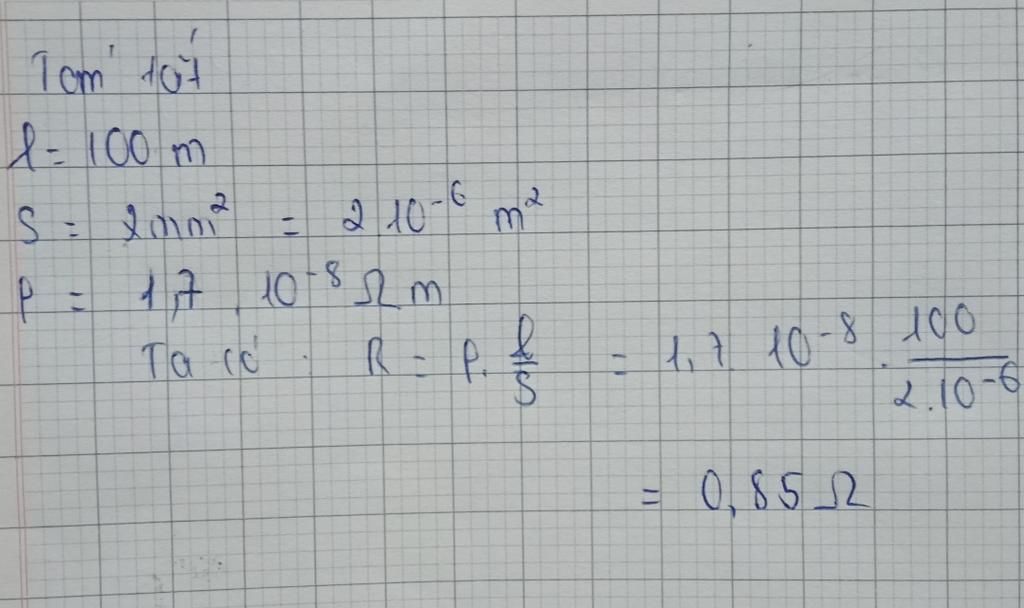 Tóm tắt
l = 100 m
S = 2mm² = 2 10⁻⁶ m²
ρ = 1,7 . 10⁻⁸ Ω m
Ta có : R = ρ. l/S = 1,7 10⁻⁸ . 100/2.10⁻⁶
= 0,85 Ω